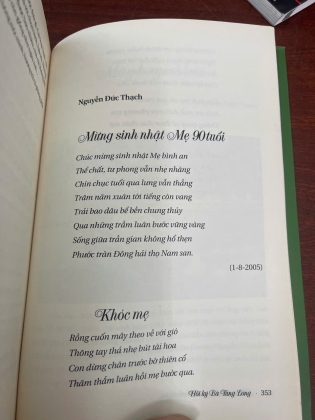 Nguyễn Đức Thạch
Mừng sinh nhật Mẹ 90 tuổi
Chúc mừng sinh nhật Mẹ bình an
Thể chất, tư phong vẫn nhẹ nhàng
Chín chục tuổi qua lưng vẫn thẳng
Trăm năm xuân tới tiếng còn vang
Trải bao dâu bể bền chung thủy
Qua những trầm luân bước vững vàng
Sống giữa trần gian không hổ thẹn
Phước tràn Đông hải thọ Nam san.
(1-8-2005)
Khóc mẹ
Rồng cuốn mây theo về với gió
Thông tay thả nhẹ bút tài hoa
Con đừng chân trước bờ thiên cổ
Thăm thẳm luân hồi mẹ bước qua.
Hồi ký Bà Tùng Long · 353